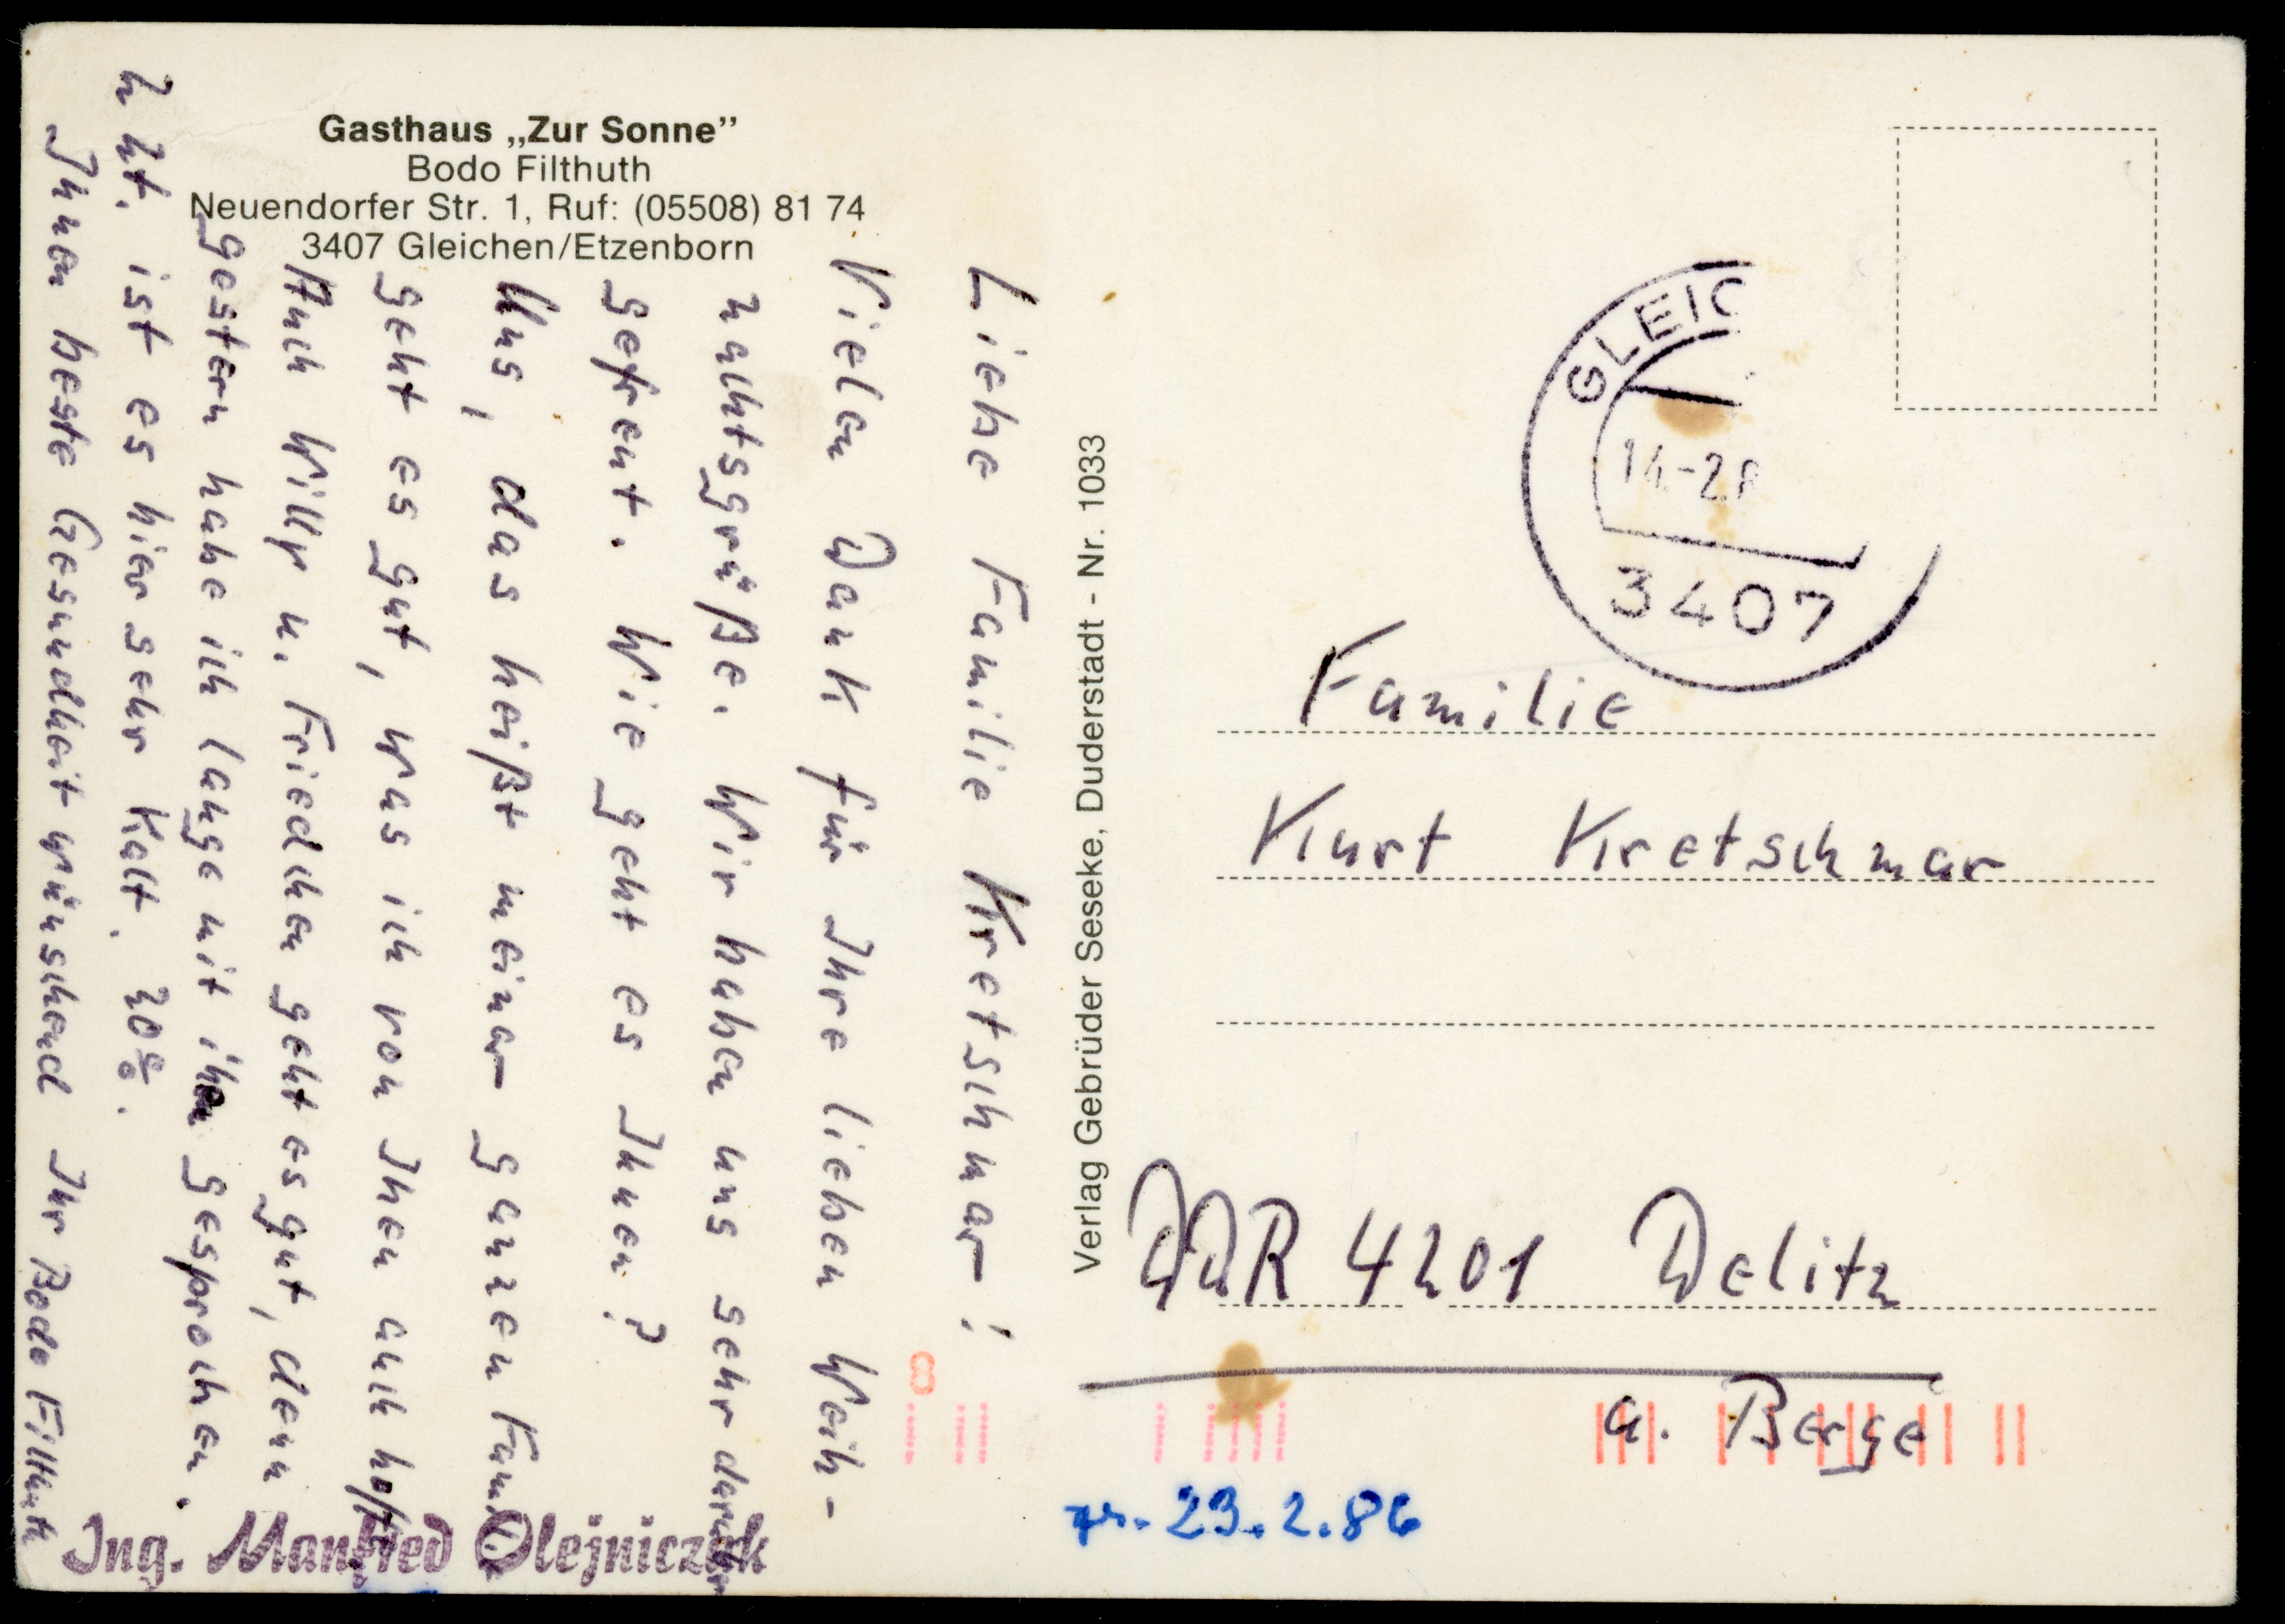 Gasthaus „Zur Sonne”
Bodo Filthuth
Neuendorfer Str. 1, Ruf: (05508) 81 74
3407 Gleichen/Etzenborn
Liebe Familie Kretschmar!
Vielen Dank für Ihre lieben Weih-
nachtsgrüße. Wir haben uns sehr darüber
gefreut. Wie geht es Ihnen?
Uns, das heißt meiner ganzen Fami
geht es gut, was ich von Ihen auch hoffe
Auch Willy u. Friedchen geht es gut, denn
gestern habe ich lange mit ihen gesprochen.
Z Zt. ist es hier sehr Kalt. 20°.
Ihnen beste Gesundheit wünschend Ihr Bodo Filthuth
Ing. Manfred Olejniczak
Verlag Gebrüder Seseke, Duderstadt - Nr. 1033
GLEIC
14.-2.8
3407
Familie
Kurt Kretschmar
DDR 4201 Delitz
a. Berge
8
23.2.86